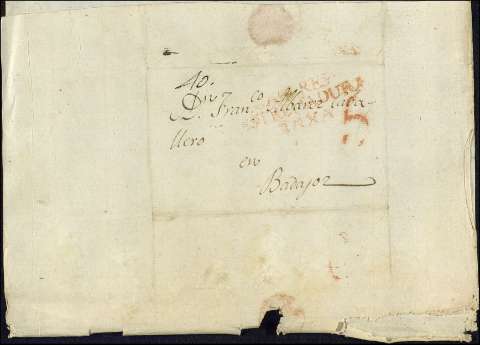 40.
Dn. Franco. Alvarez Caba-
llero
en
Badajoz
EXTREMADURA
BAXA
5